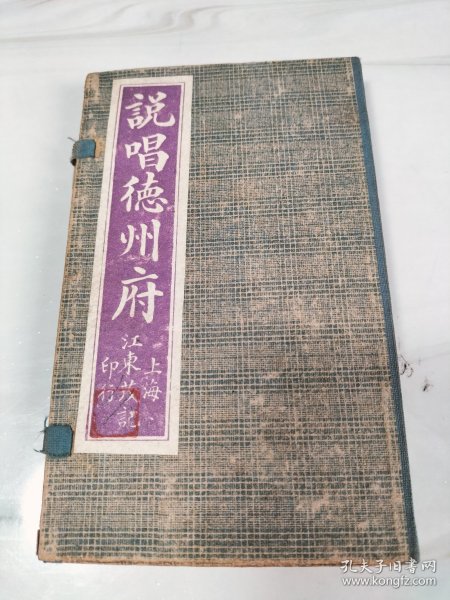 說唱徳州府
上海
江東茂記
印行
孔夫子旧书网
www.kongfz.com